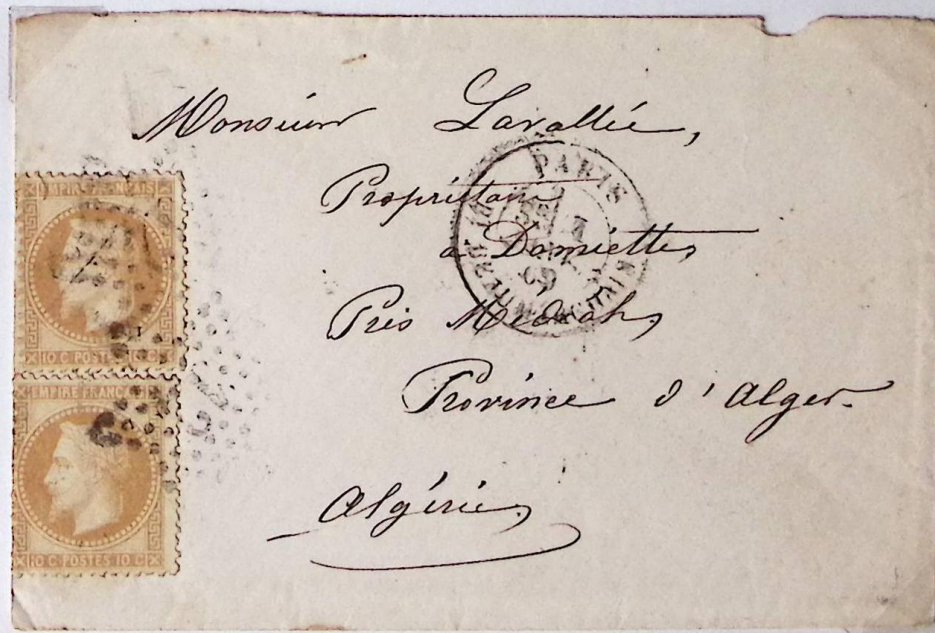 Monsieur Lavallée,
Propriétaire
à Damiette,
Près Médéah,
Province d'Alger.
Algérie,
PARIS
69
EMPIRE FRANÇAIS
10 C POSTES 10 C
EMPIRE FRANÇAIS
10 C POSTES 10 C